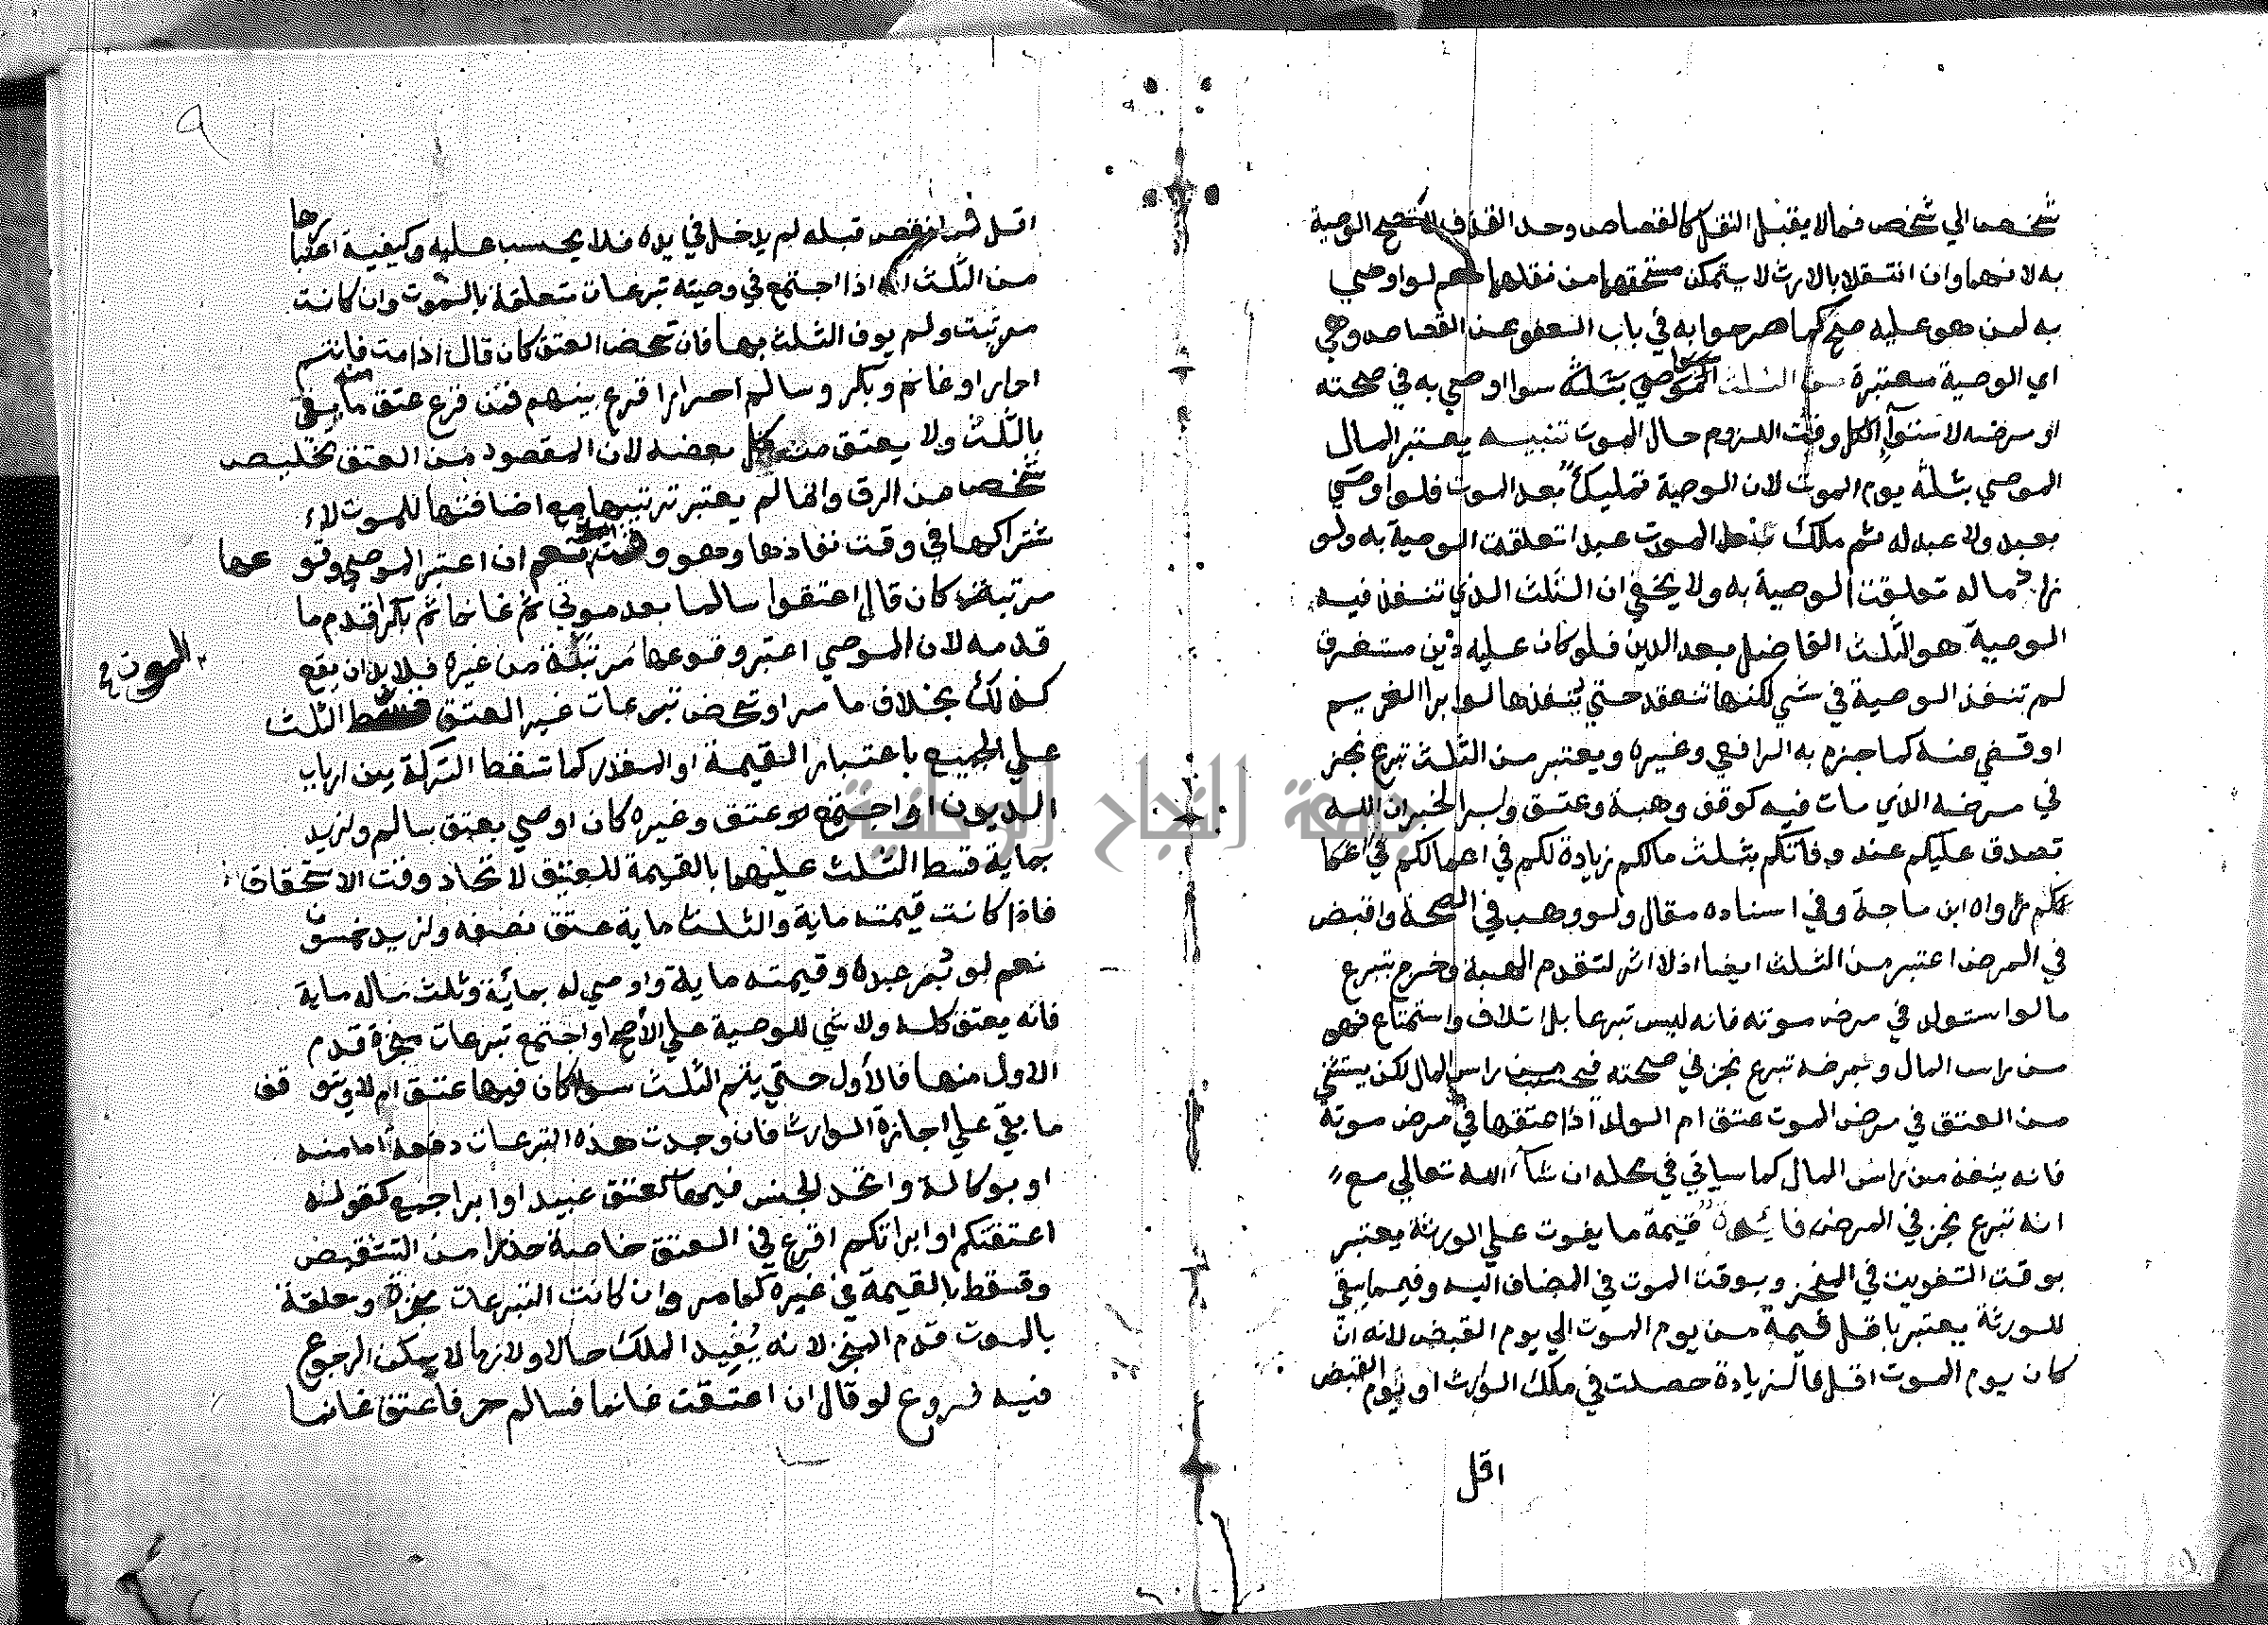 شخص الي شخص فما لا يقبل النقل كالقصاص وحد القذف لا تصح الوصية
به لانهما وان انتقلا بالارث لا يتمكن مستحقهما من نقلهما نعم لو اوصي
به لمن هو عليه صح كما صرحوا به في باب العفو عن القصاص وهي
اي الوصية معتبرة من الثلث الموصي بثلثه سوا اوصي به في صحته
او مرضه لاستوآ الكل وقت اللزوم حال الموت تنبيه يعتبر المال
الموصي بثلثه يوم الموت لان الوصية تمليك بعد الموت فلو اوصي
بعبد ولا عبد له ثم ملك عند الموت عبدا تعلقت الوصية به ولو
زاد ماله تعلقت الوصية به ولا يخفي ان الثلث الذي تنفذ فيه
الوصية هو الثلث الفاضل بعد الدين فلو كان عليه دين مستغرق
لم تنفذ الوصية في شي لكنها تنعقد حتي ينفذها لو ابرا الغريم
او قضي عنه كما جزم به الرافعي وغيره ويعتبر من الثلث تبرع نجز
في مرضه الذي مات فيه كوقف وهبة وعتق وابرا لخبر ان الله
تصدق عليكم عند وفاتكم بثلث مالكم زيادة لكم في اعمالكم في اعما
لكم رواه ابن ماجة وفي اسناده مقال ولو وهب في الصحة واقبض
في المرض اعتبر من الثلث ايضا اذ لا اثر لتقدم الهبة وخرج بتبرع
ما لو استولد في مرض موته فانه ليس تبرعا بل اتلاف واستمتاع فهو
من راس المال وبمرضه تبرع نجز في صحته فيحسب من راس المال لكن يستثني
من العتق في مرض الموت عتق ام الولد اذا اعتقها في مرض موته
فانه ينفذ من راس المال كما سياتي في محله ان شآء الله تعالي مع
انه تبرع نجز في المرض فايدة قيمة ما يفوت علي الورثة يعتبر
بوقت التفويت في المنجز وبوقت الموت في المضاف اليه وفيما يبقي
للورثة يعتبر باقل قيمة من يوم الموت الي يوم القبض لانه ان
كان يوم الموت اقل فالزيادة حصلت في ملك الوارث او يوم القبض
اقل
٩
اقل فما نقص قبله لم يدخل في يده فلا يحسب عليه وكيفية اعتبارها
من الثلث انه اذا اجتمع في وصيته تبرعات متعلقة بالموت وان كانت
مرتبت ولم يوف الثلث بها فان تمحض العتق كان قال اذا مت فانتم
احرار او غانم وبكر وسالم احرار اقرع بينهم فمن قرع عتق منه ما يفي
بالثلث ولا يعتق من كل بعضه لان المقصود من العتق تخليص
شخص من الرق وانما لم يعتبر ترتيبها مع اضافتها للموت لا
شتراكها في وقت نفاذها وهو وقت نعم ان اعتبر الموصي وقوعها
مرتبة كان قال اعتقوا سالما بعد موتي ثم غانما ثم بكرا قدم ما
قدمه لان الموصي اعتبر وقوعها مرتبة من غيره فلا بد ان يقع
الموت
كذلك بخلاف ما مر او تمحض تبرعات غير العتق قسط الثلث
علي الجميع باعتبار القيمة او المقدار كما تقسط التركة بين ارباب
الديون او اجتمع عتق وغيره كان اوصي بعتق سالم ولزيد
بماية قسط الثلث عليهما بالقيمة للعتق لاتحاد وقت الاستحقاق
فاذا كانت قيمته ماية والثلث ماية عتق نصفه ولزيد خمسون
نعم لو دبر عبده وقيمته ماية واوصي له بماية وثلث ماله ماية
فانه يعتق كله ولا شي للوصية علي الأصح او اجتمع تبرعات منجزة قدم
الاول منها فالأول حتي يتم الثلث سوا كان فيها عتق ام لا ويتوقف
ما بقي علي اجازة الوارث فان وجدت هذه التبرعات دفعة اما منه
او بوكالة واتحد الجنس فيها كعتق عبيد او ابرا جمع كقوله
اعتقتكم او ابراتكم اقرع في العتق خاصة حذرا من التشقيص
وقسط بالقيمة في غيره كما مر وان كانت التبرعات منجزة ومعلقة
بالموت قدم المنجز لانه يفيد الملك حالا ولازما لا يمكن الرجوع
فيه فروع لو قال ان اعتقت غانما فسالم حر فاعتق غانما